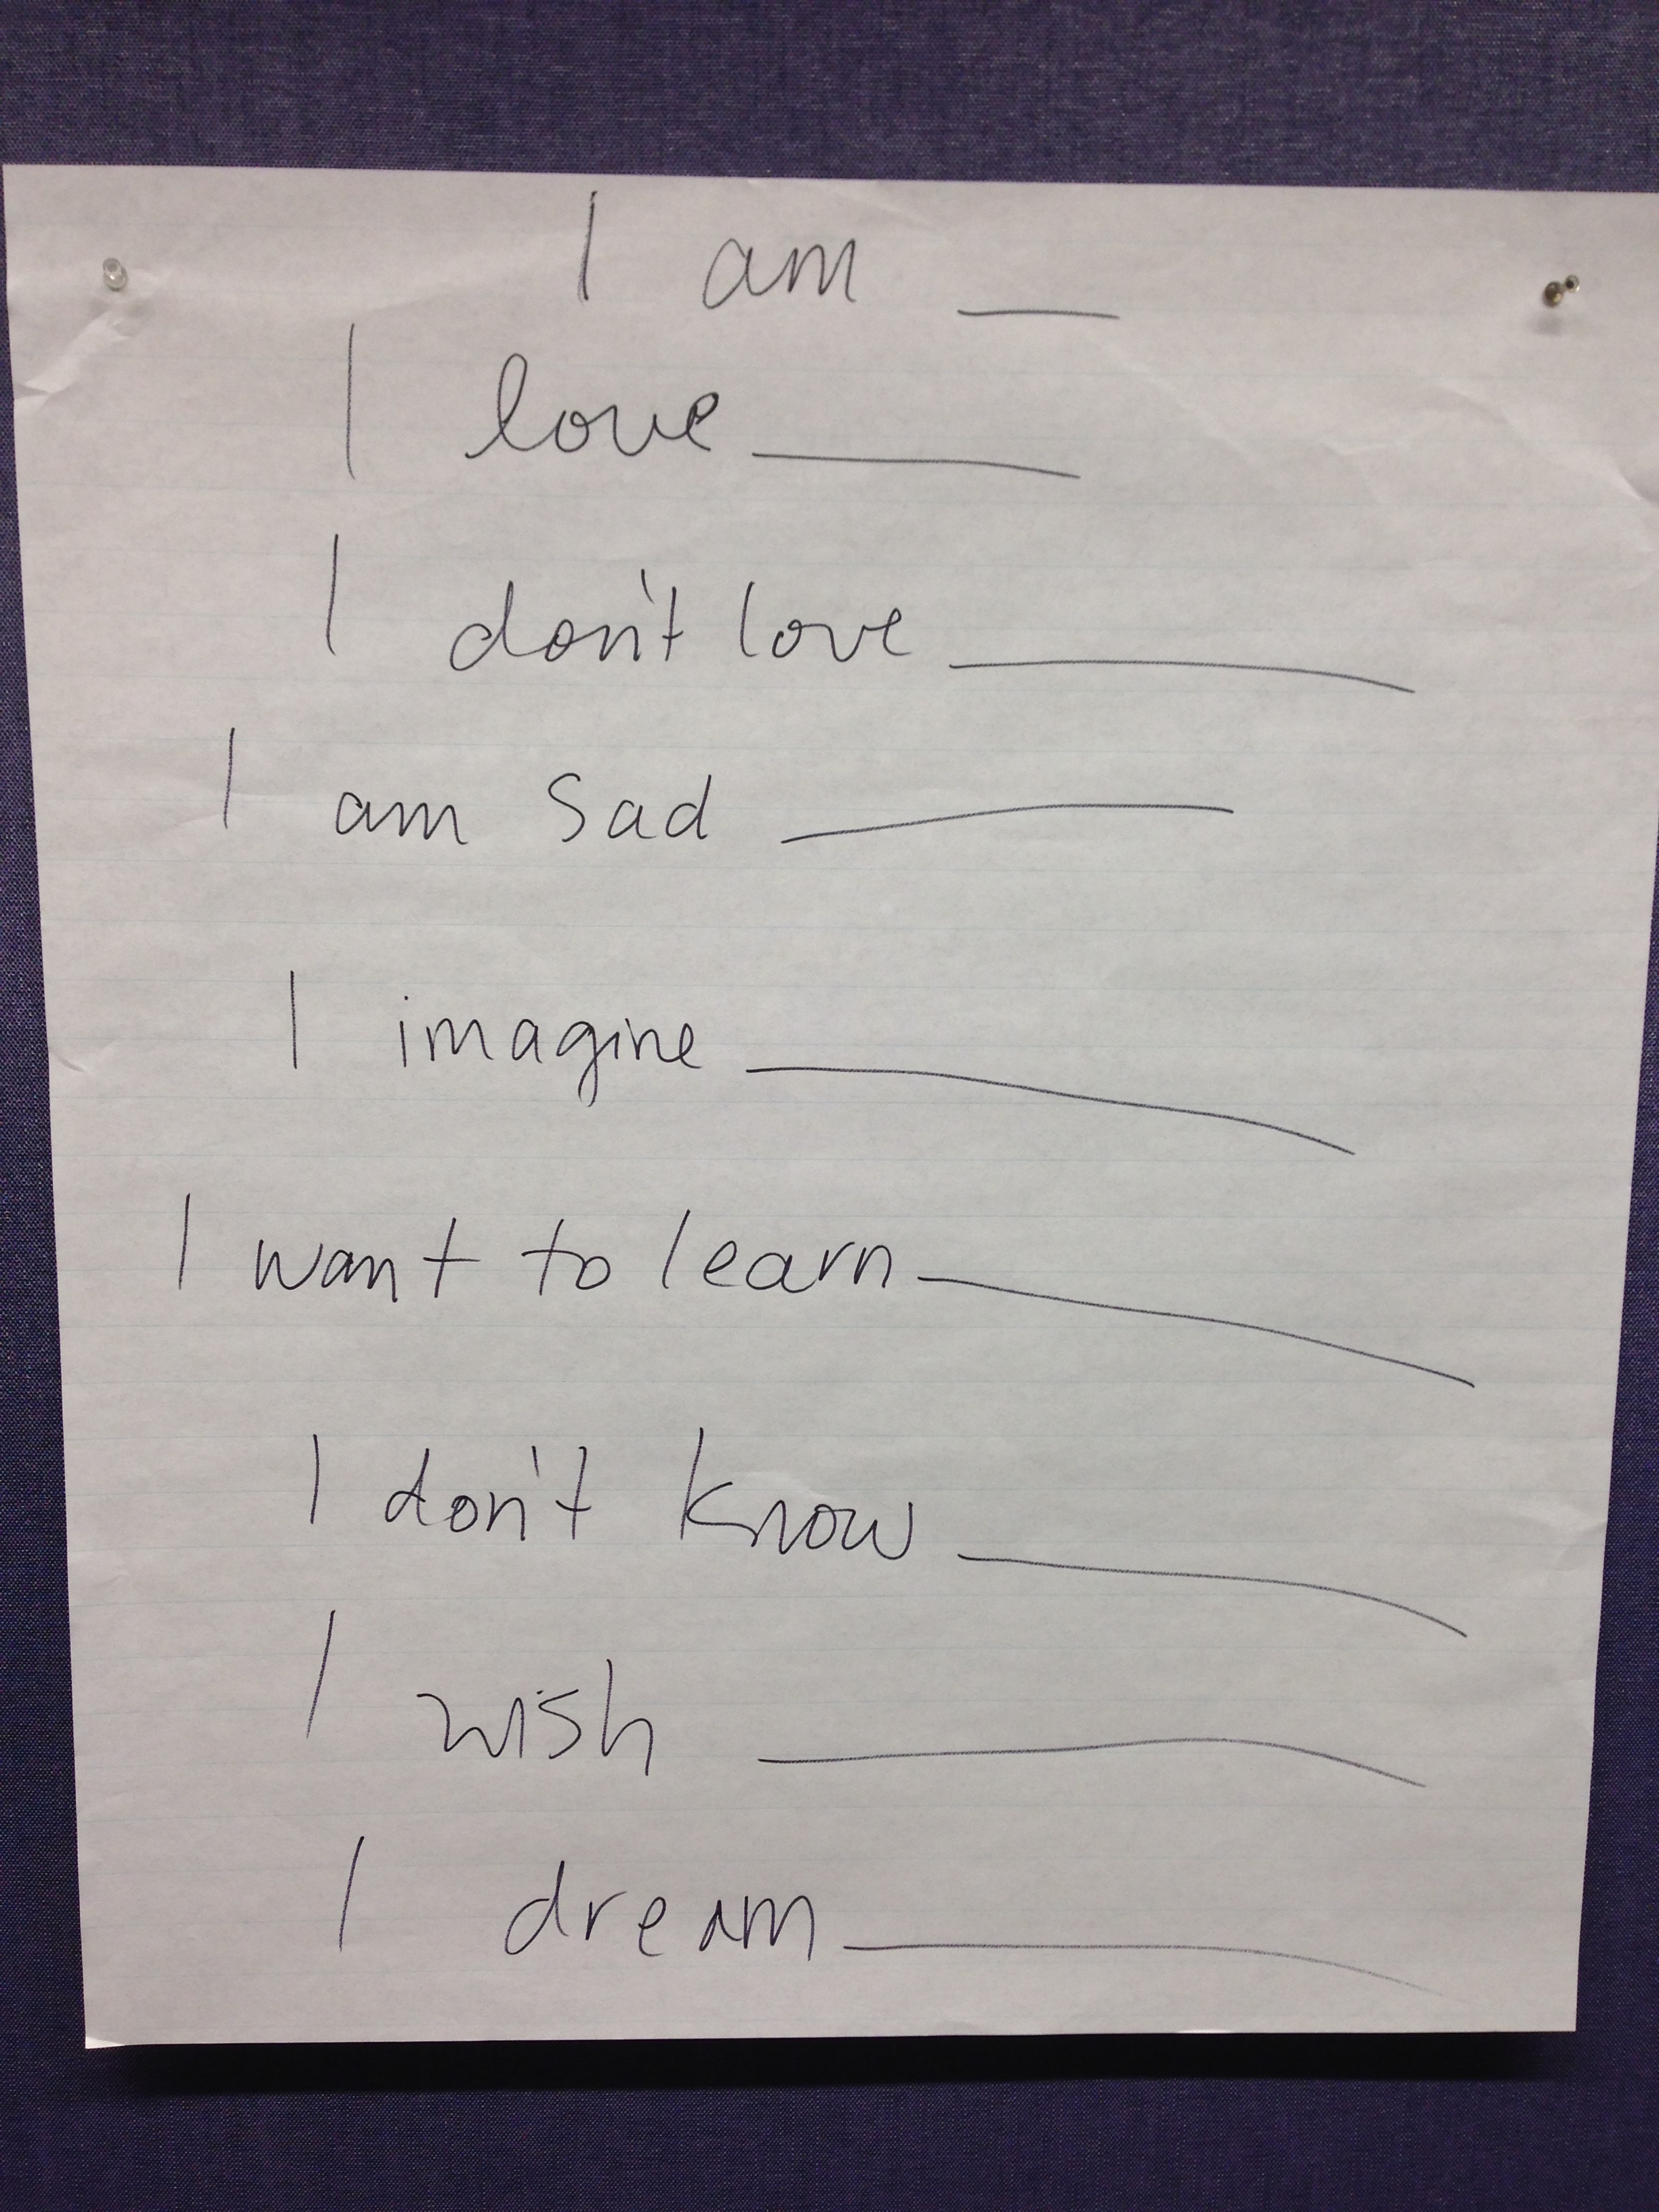 I am __
I love ____
I don't love ______
I am sad ______
I imagine ________
I want to learn ________
I don't know ______
I wish ________
I dream ________